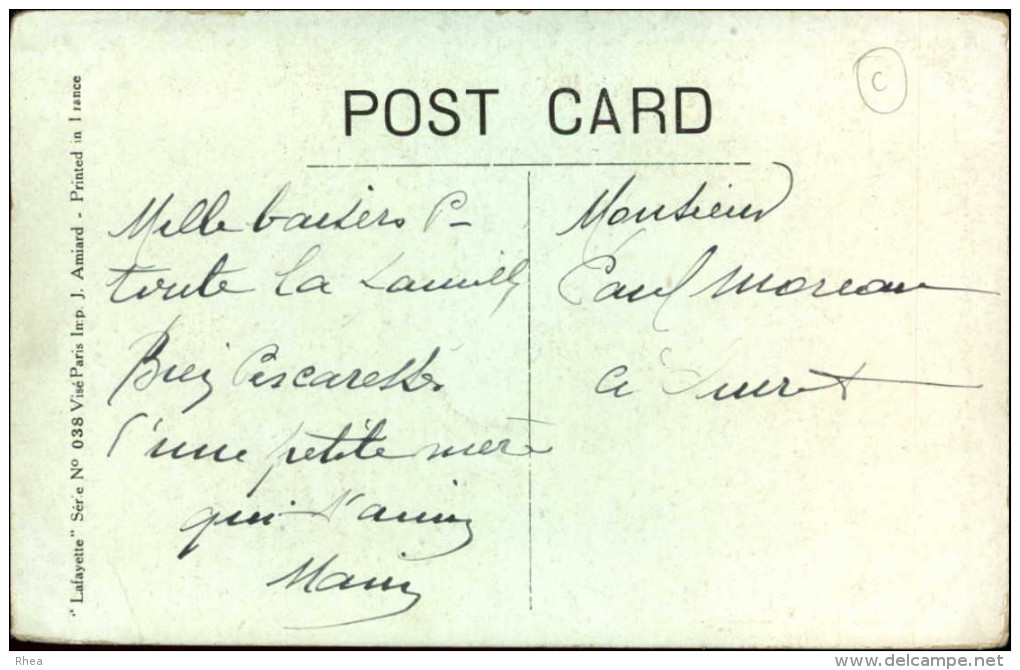 POST CARD
C
Mille baisers P-
toute la
Bien
d'une petite mère
qui t'aime
Monsieur
Paul Moreau
à
"Lafayette" Série Nº 038 Visé Paris Imp. J. Amiard - Printed in France
Rhea
www.delcampe.net